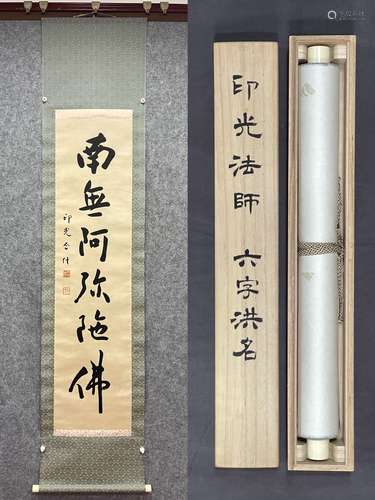 南無阿弥陀佛
印光合什
印光法師 六字洪名